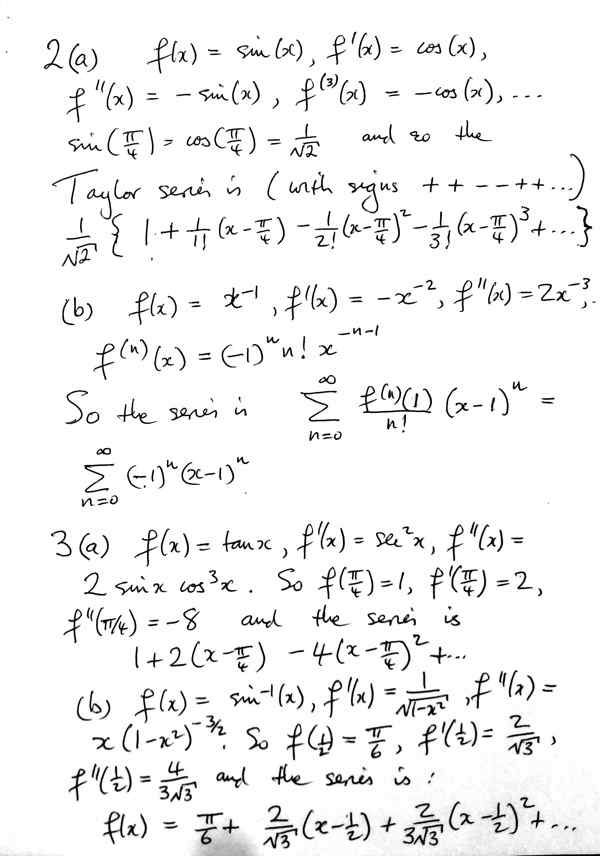 2(a) f(x) = sin(x), f'(x) = cos(x),
f''(x) = -sin(x), f⁽³⁾(x) = -cos(x), ...
sin(π/4) = cos(π/4) = 1/√2 and so the
Taylor series is (with signs + + - - + + ...)
1/√2 { 1 + 1/1! (x - π/4) - 1/2! (x - π/4)² - 1/3! (x - π/4)³ + ... }
(b) f(x) = x⁻¹, f'(x) = -x⁻², f''(x) = 2x⁻³,
f⁽ⁿ⁾(x) = (-1)ⁿ n! x⁻ⁿ⁻¹
So the series is ∑_{n=0}^{∞} f⁽ⁿ⁾(1)/n! (x-1)ⁿ =
∑_{n=0}^{∞} (-1)ⁿ (x-1)ⁿ
3(a) f(x) = tan x, f'(x) = sec²x, f''(x) =
2 sin x cos³x. So f(π/4) = 1, f'(π/4) = 2,
f''(π/4) = -8 and the series is
1 + 2(x - π/4) - 4(x - π/4)² + ...
(b) f(x) = sin⁻¹(x), f'(x) = 1/√(1-x²), f''(x) =
x(1-x²)^{-3/2}. So f(1/2) = π/6, f'(1/2) = 2/√3,
f''(1/2) = 4/3√3 and the series is:
f(x) = π/6 + 2/√3 (x - 1/2) + 2/3√3 (x - 1/2)² + ...